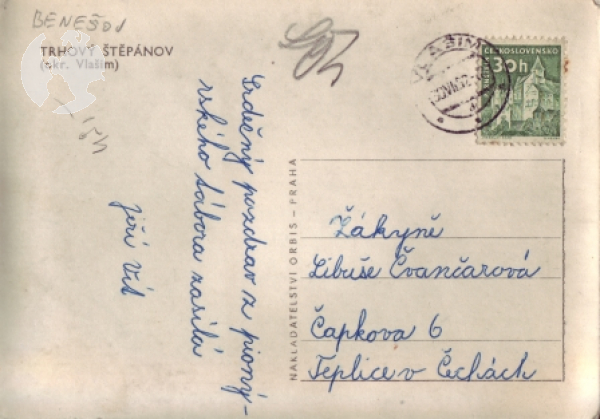 BENEŠOV
TRHOVÝ ŠTĚPÁNOV
(okr. Vlašim)
Srdečný pozdrav z pioný-
rského tábora zasílá
jiří Vít
NAKLADATELSTVÍ ORBIS – PRAHA
VLAŠIM
ČESKOSLOVENSKO
30h
Žákyně
Libuše Čvančarová
Čapkova 6
Teplice v Čechách